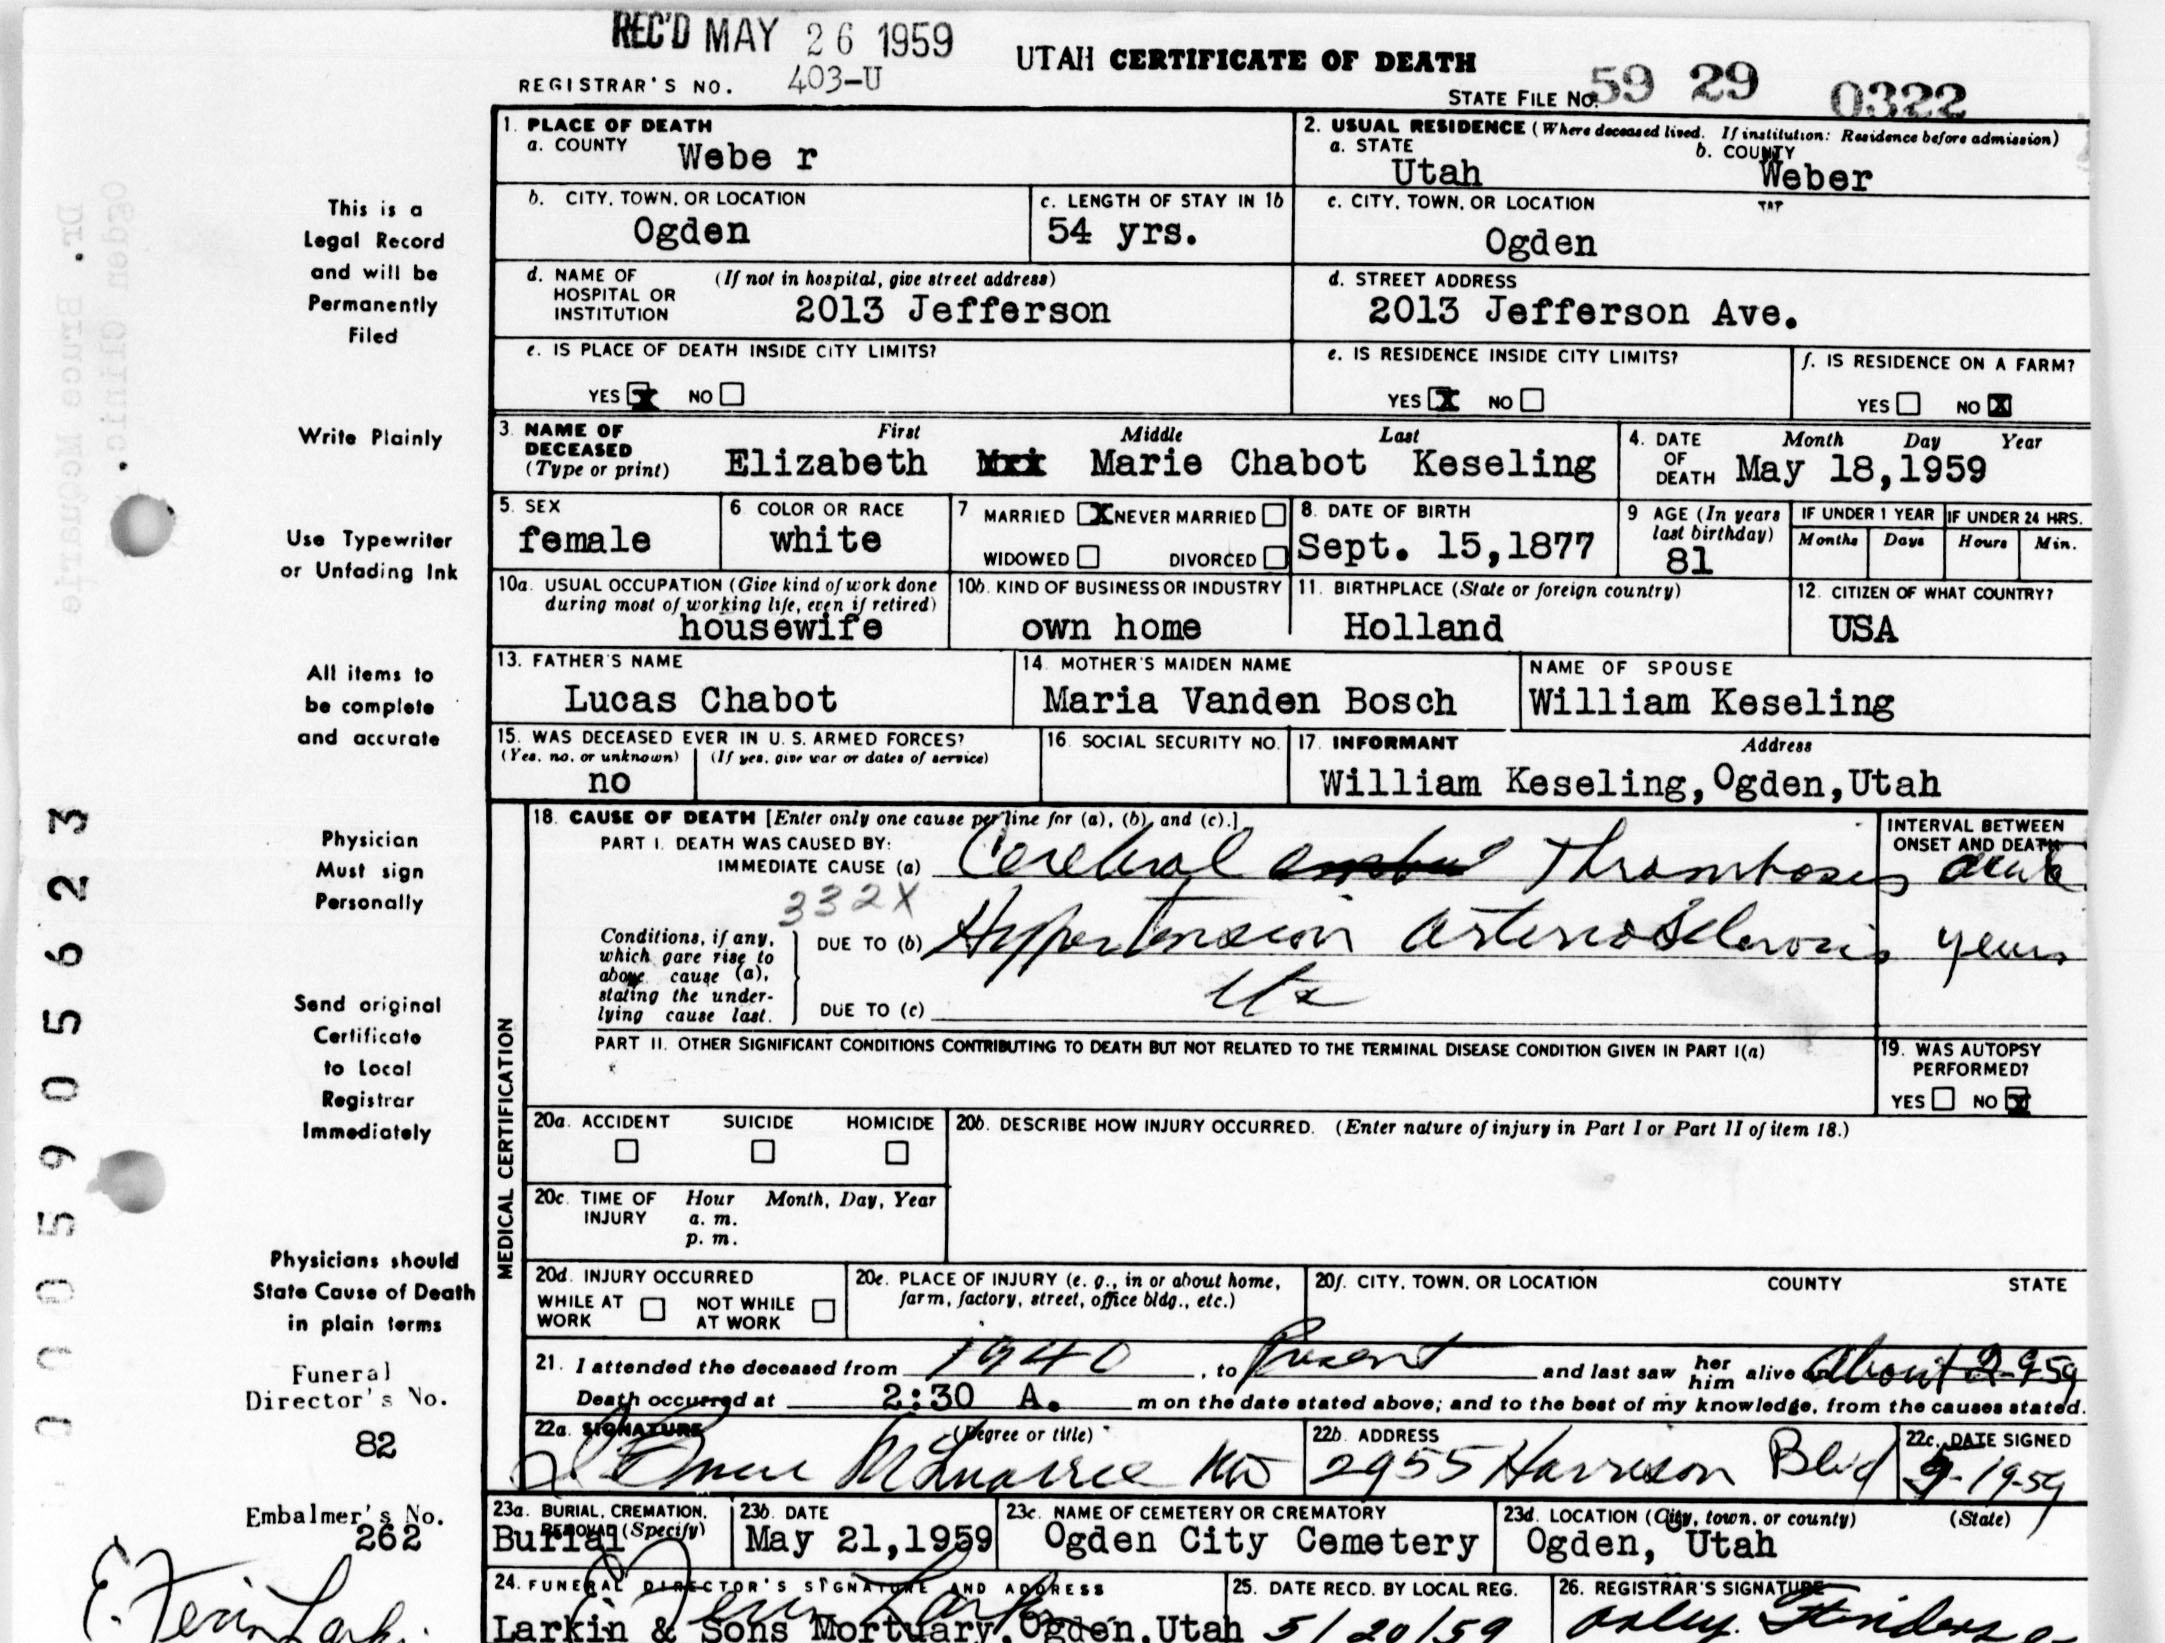 REC'D MAY 26 1959
UTAH CERTIFICATE OF DEATH
REGISTRAR'S NO. 403-U
STATE FILE NO. 59 29 0322
1. PLACE OF DEATH
a. COUNTY Webe r
2. USUAL RESIDENCE (Where deceased lived. If institution: Residence before admission)
a. STATE Utah b. COUNTY Weber
b. CITY, TOWN, OR LOCATION Ogden
c. LENGTH OF STAY IN 1b 54 yrs.
c. CITY, TOWN, OR LOCATION Ogden
d. NAME OF HOSPITAL OR INSTITUTION (If not in hospital, give street address) 2013 Jefferson
d. STREET ADDRESS 2013 Jefferson Ave.
e. IS PLACE OF DEATH INSIDE CITY LIMITS?
YES X NO
e. IS RESIDENCE INSIDE CITY LIMITS?
YES X NO
f. IS RESIDENCE ON A FARM?
YES NO X
3. NAME OF DECEASED (Type or print) First Middle Last
Elizabeth Marie Chabot Keseling
4. DATE OF DEATH Month Day Year
May 18,1959
5. SEX female
6. COLOR OR RACE white
7 MARRIED X NEVER MARRIED
WIDOWED DIVORCED
8. DATE OF BIRTH Sept. 15,1877
9 AGE (In years last birthday) 81
IF UNDER 1 YEAR Months Days
IF UNDER 24 HRS. Hours Min.
10a. USUAL OCCUPATION (Give kind of work done during most of working life, even if retired) housewife
10b. KIND OF BUSINESS OR INDUSTRY own home
11. BIRTHPLACE (State or foreign country) Holland
12. CITIZEN OF WHAT COUNTRY? USA
13. FATHER'S NAME Lucas Chabot
14. MOTHER'S MAIDEN NAME Maria Vanden Bosch
NAME OF SPOUSE William Keseling
15. WAS DECEASED EVER IN U. S. ARMED FORCES?
(Yes, no, or unknown) (If yes, give war or dates of service)
no
16. SOCIAL SECURITY NO.
17. INFORMANT Address
William Keseling, Ogden, Utah
MEDICAL CERTIFICATION
18. CAUSE OF DEATH [Enter only one cause per line for (a), (b), and (c).]
PART I. DEATH WAS CAUSED BY:
IMMEDIATE CAUSE (a) Cerebral Thrombosis
INTERVAL BETWEEN ONSET AND DEATH
acute
332X
Conditions, if any, which gave rise to above cause (a), stating the underlying cause last.
DUE TO (b) Hypertension arteriosclerosis years
DUE TO (c)
PART II. OTHER SIGNIFICANT CONDITIONS CONTRIBUTING TO DEATH BUT NOT RELATED TO THE TERMINAL DISEASE CONDITION GIVEN IN PART I(a)
19. WAS AUTOPSY PERFORMED?
YES NO X
20a. ACCIDENT SUICIDE HOMICIDE
20b. DESCRIBE HOW INJURY OCCURRED. (Enter nature of injury in Part I or Part II of item 18.)
20c. TIME OF INJURY Hour Month, Day, Year
a. m.
p. m.
20d. INJURY OCCURRED
WHILE AT WORK NOT WHILE AT WORK
20e. PLACE OF INJURY (e. g., in or about home, farm, factory, street, office bldg., etc.)
20f. CITY, TOWN, OR LOCATION COUNTY STATE
21. I attended the deceased from 1940, to Present and last saw her him alive on About 2-9-59
Death occurred at 2:30 A. m on the date stated above; and to the best of my knowledge, from the causes stated.
22a. SIGNATURE (Degree or title)
Bruce McQuarrie MD
22b. ADDRESS
2955 Harrison Blvd
22c. DATE SIGNED
5-19-59
23a. BURIAL, CREMATION, REMOVAL (Specify) Burial
23b. DATE May 21,1959
23c. NAME OF CEMETERY OR CREMATORY Ogden City Cemetery
23d. LOCATION (City, town, or county) (State) Ogden, Utah
24. FUNERAL DIRECTOR'S SIGNATURE AND ADDRESS
Larkin & Sons Mortuary, Ogden, Utah
25. DATE RECD. BY LOCAL REG.
5/20/59
26. REGISTRAR'S SIGNATURE
This is a
Legal Record
and will be
Permanently
Filed
Write Plainly
Use Typewriter
or Unfading Ink
All items to
be complete
and accurate
Physician
Must sign
Personally
Send original
Certificate
to Local
Registrar
Immediately
Physicians should
State Cause of Death
in plain terms
Funeral
Director's No.
82
Embalmer's No.
262
Dr. Bruce McQuarrie
Ogden Clinic.
00005905623